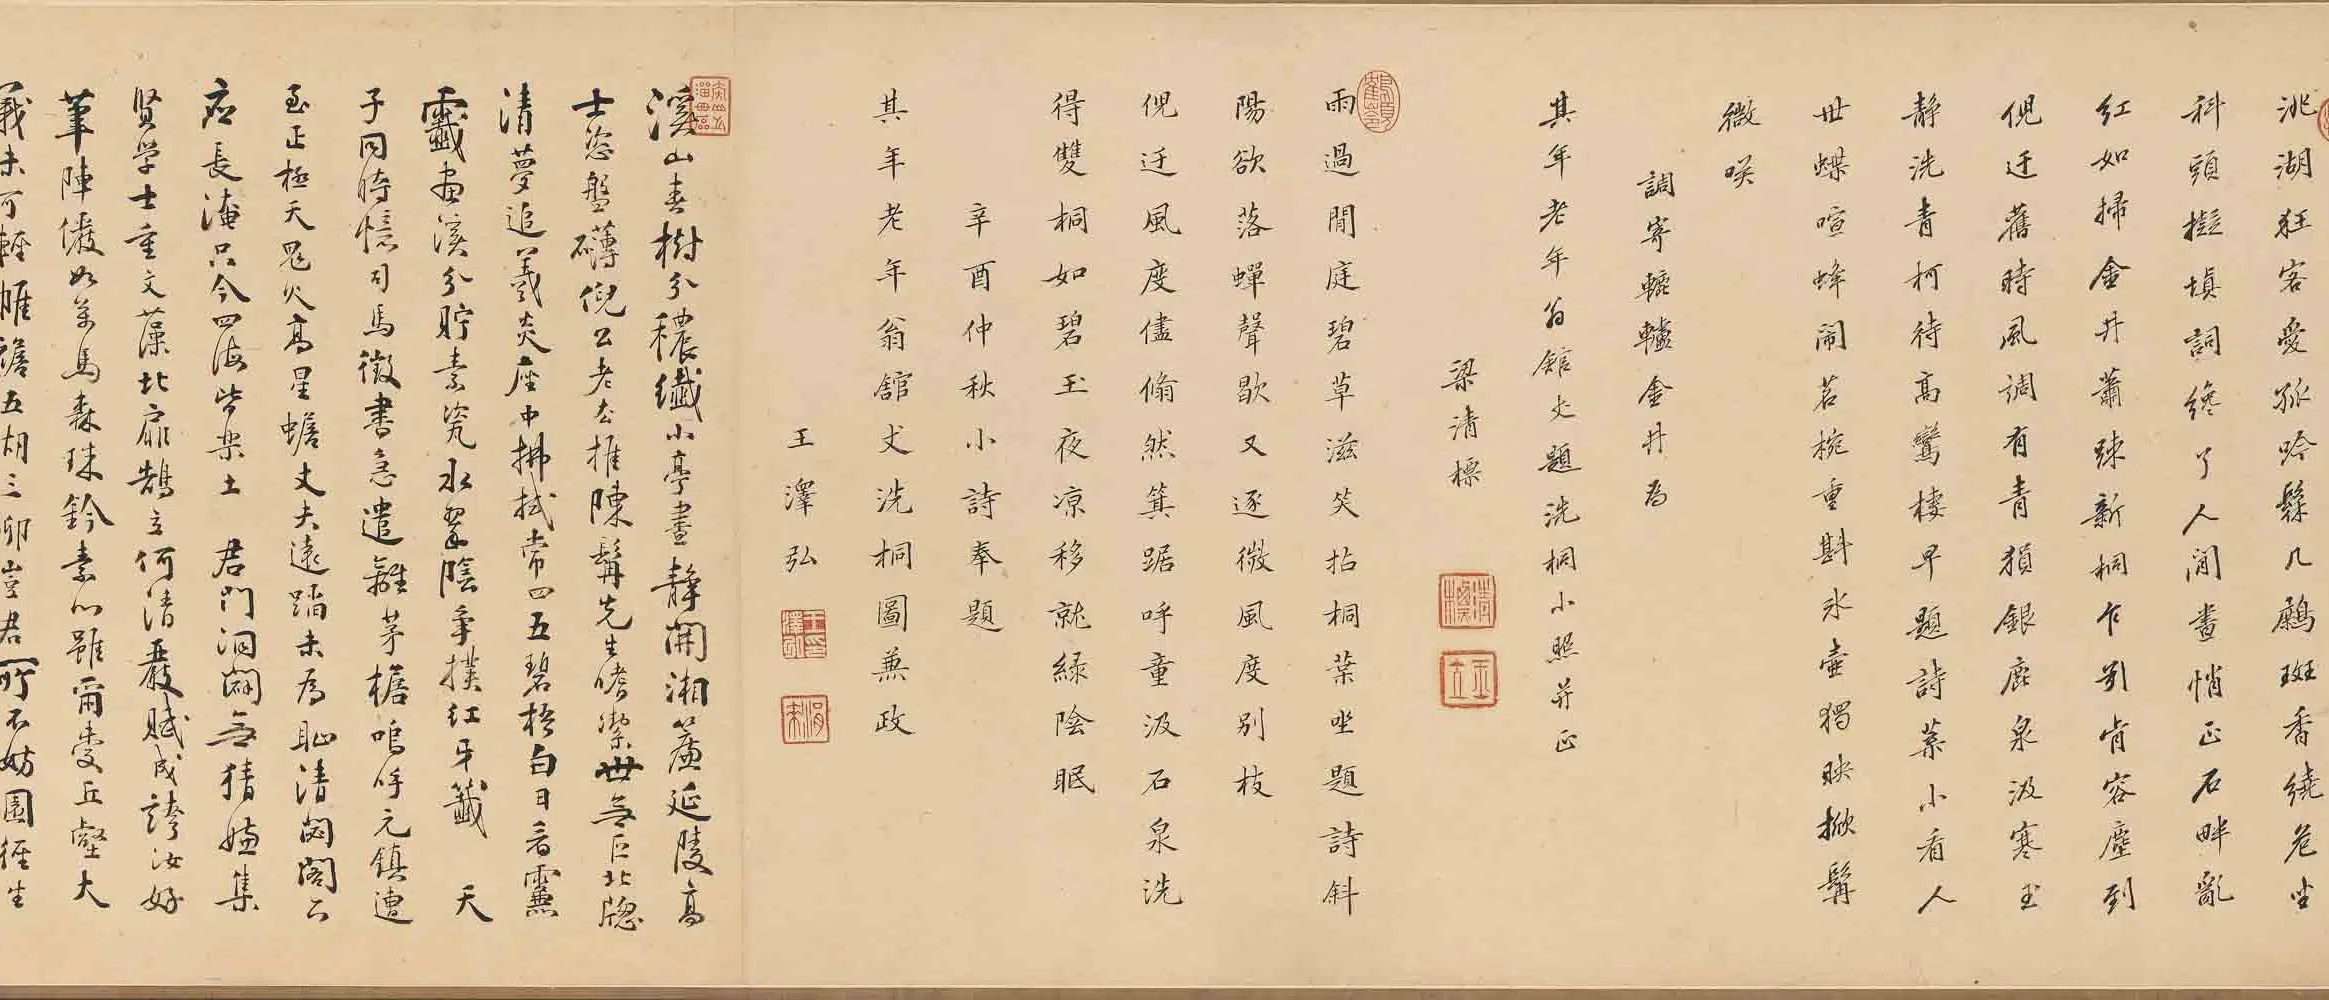 洮湖狂客愛孤吟髹几鷓斑香繞危坐
科頭擬填詞纔了人閒晝悄正石畔亂
紅如掃金井蕭疎新桐乍引肯容塵到
倪迂舊時風調有青猨銀鹿泉汲寒玉
靜洗青柯待高鸞棲早題詩葉小看人
世蝶喧蜂鬧茗椀重斟冰壺獨映掀髯
微咲
調寄轆轤金井為
其年老年翁館丈題洗桐小照并正
梁清標
雨過閒庭碧草滋笑拈桐葉坐題詩斜
陽欲落蟬聲歇又逐微風度別枝
倪迂風度儘翛然箕踞呼童汲石泉洗
得雙桐如碧玉夜涼移就綠陰眠
辛酉仲秋小詩奉題
其年老年翁舘丈洗桐圖兼政
王澤弘
溪山春樹分穠纖小亭晝靜開湘簾延陵高
士恣盤礴倪公老去推陳髯先生嗜潔世無匹北牕
清夢追羲炎座中拂拭常四五碧梧白日看靈
靈畫溪分貯素瓷水翠陰爭撲紅牙籤 天
子同時憶司馬徵書急遣離茅檐嗚呼元鎮遭
至正極天鬼火高星蟾丈夫遠蹈未為恥清閟閣下
應長淹只今四海皆樂土 君門洞闢無猜嫌集
賢學士重文藻北扉鵠立何清嚴賦成誇汝好
筆陣儼如萬馬森珠鈐素心雖爾愛丘壑大
義未可輕帷襜五胡三泖豈君所不妨圖徑坐